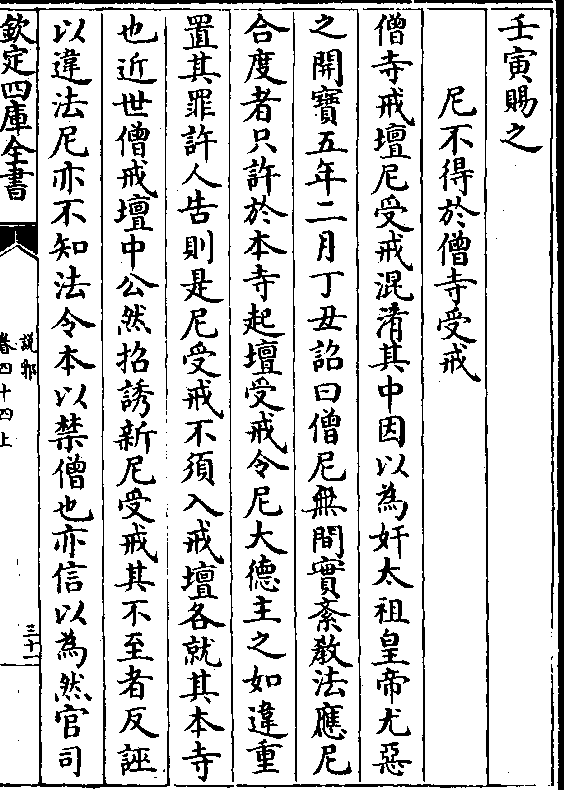 壬寅賜之
尼不得於僧寺受戒
僧寺戒壇尼受戒混淆其中因以為奸太祖皇帝尤惡
之開寶五年二月丁丑詔曰僧尼無間實紊教法應尼
合度者只許於本寺起壇受戒令尼大德主之如違重
置其罪許人告則是尼受戒不須入戒壇各就其本寺
也近世僧戒壇中公然招誘新尼受戒其不至者反誣
以違法尼亦不知法令本以禁僧也亦信以為然官司
欽定四庫全書
說郛
卷四十四上
三十一